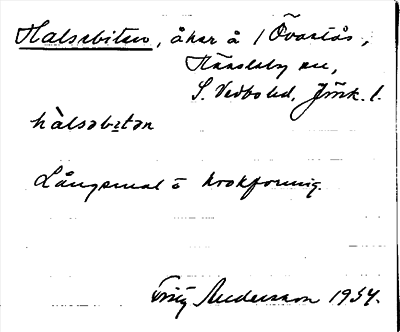 Halsabiten, åker å 1 Övarås,
Hässleby sn,
S. Vedbo hd, Jönk. l.
hàlsəbɪtən
Långsmal o krokformig.
Fritz Andersson 1934.